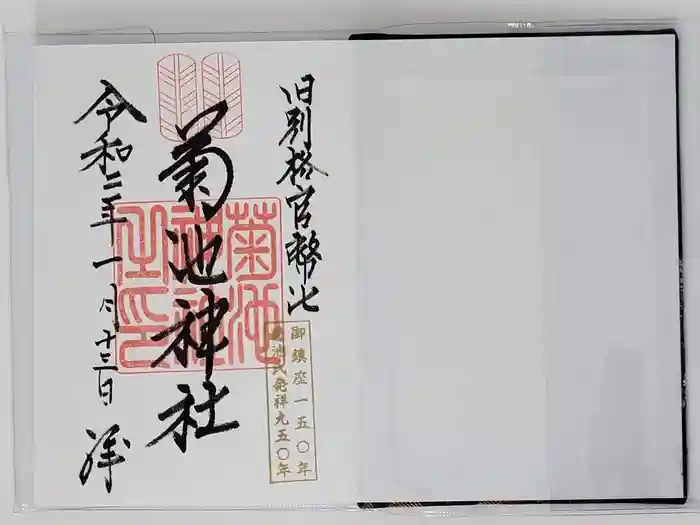 旧別格官幣社
御鎮座一五〇年
菊池氏発祥九五〇年
菊池神社
菊池神社之印
令和二年一月十三日
拝